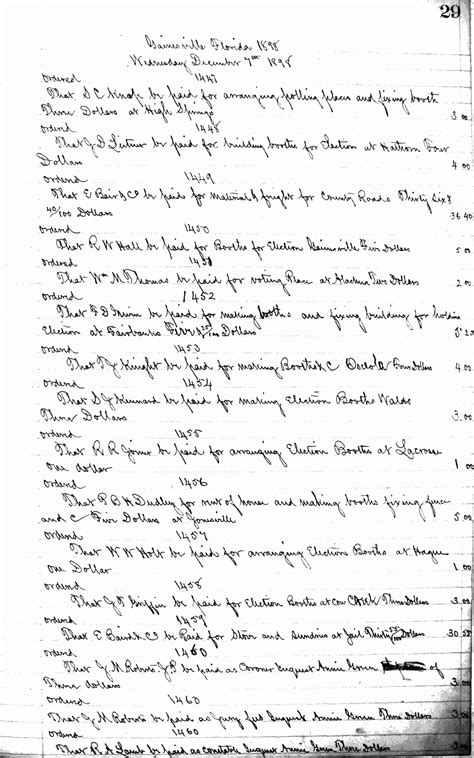 29
Gainesville Florida 1898
Wednesday December 7th 1898
ordered 1447
That S C Knop be paid for arranging polling places and fixing booth
Three Dollars at High Springs 3 00
ordered 1448
That J D be paid for building booths for Election at Four
Dollars 4 00
ordered 1449
That E Baird & Co be paid for Material & freight for County Roads Thirty Six &
40/100 Dollars 36 40
ordered 1450
That R W Hall be paid for Booths for Election Gainesville Five Dollars 5 00
ordered 1451
That Wm N Thomas be paid for voting Place at Two Dollars 2 00
ordered 1452
That F D be paid for making booths and fixing building for holding
Election at Fairbanks Dollars 5 20
ordered 1453
That Knight be paid for making Booths & C Osceola Four Dollars 4 00
ordered 1454
That S J Kennard be paid for making Election Booths Waldo
Three Dollars 3.00
ordered 1455
That R R Joiner be paid for arranging Election Booths at Lacrosse
One dollar 1 00
ordered 1456
That P B H Dudley for rent of house and making booths fixing fence
and C Five Dollars at Jonesville 5 00
ordered 1457
That W W Holt be paid for arranging Election Booths at Hague
One Dollar 1.00
ordered 1458
That J T Griffin be paid for Election Booths at Cow Creek Three Dollars 3.00
ordered 1459
That E Baird & C be Paid for Stove and Sundries at Jail Thirty 55/100 Dollars 30 55
ordered 1460
That J M Roberts J.P. be paid as Coroner Inquest Annie Green of
Three dollars 3.00
ordered 1460
That J M Roberts be paid as Jury fees Inquest Annie Green Three Dollars 3 00
ordered 1460
That R A Lamb be paid as Constable Inquest Annie Green Three Dollars 3 00